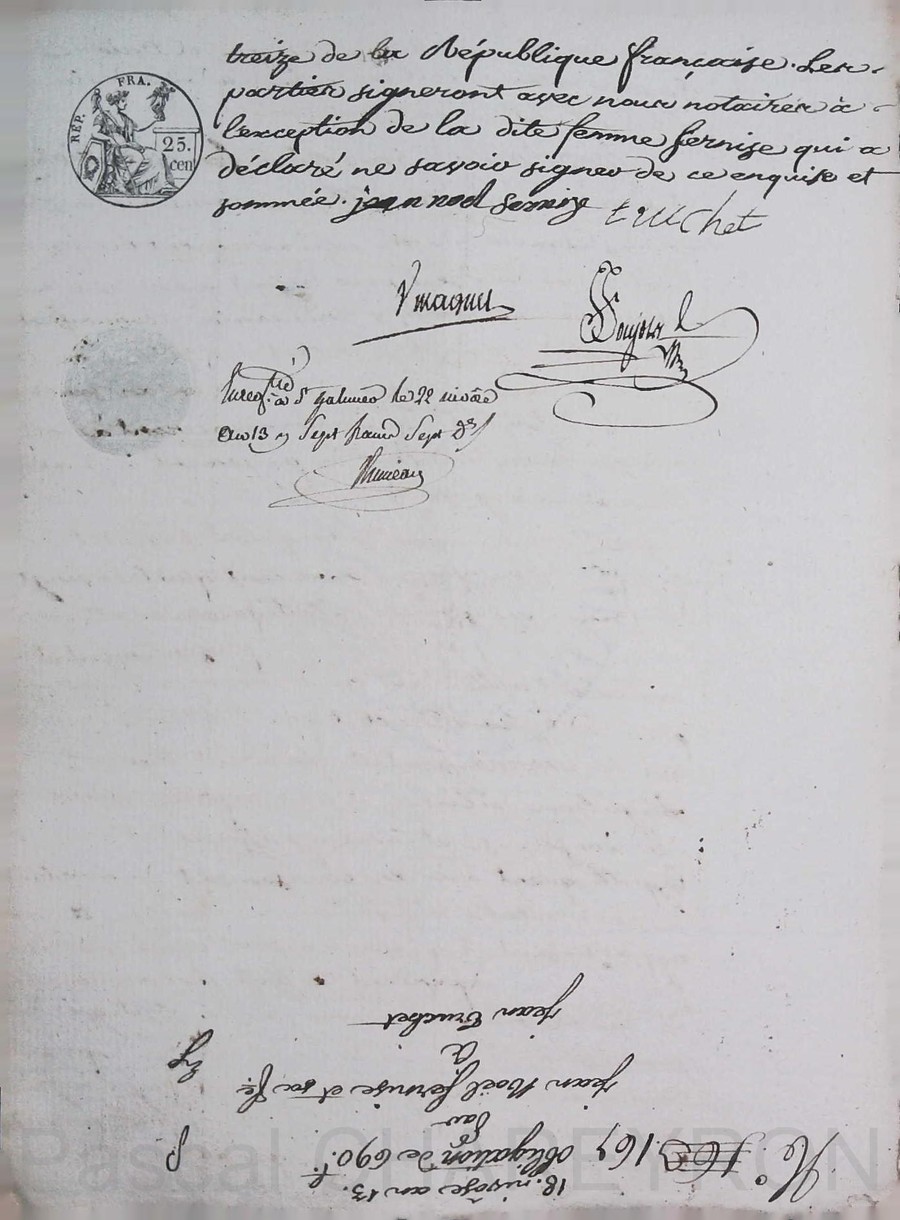 RÉP. FRA.
25.
cen
treize de la République française. Les
parties signeront avec nous notaires à
l'exception de la dite femme sernise qui a
déclaré ne savoir signer de ce enquise et
sommée. jean noel sernize truchet
Vmagnet
Enregtré à St galmier le 22 nivôse
an 13 Sept francs Sept
18. nivôse an 13.
N.° 163 167 obligation de 690.f
par
jean Noël sernise et sa fe.
a
jean truchet
Pascal CHABEYRON